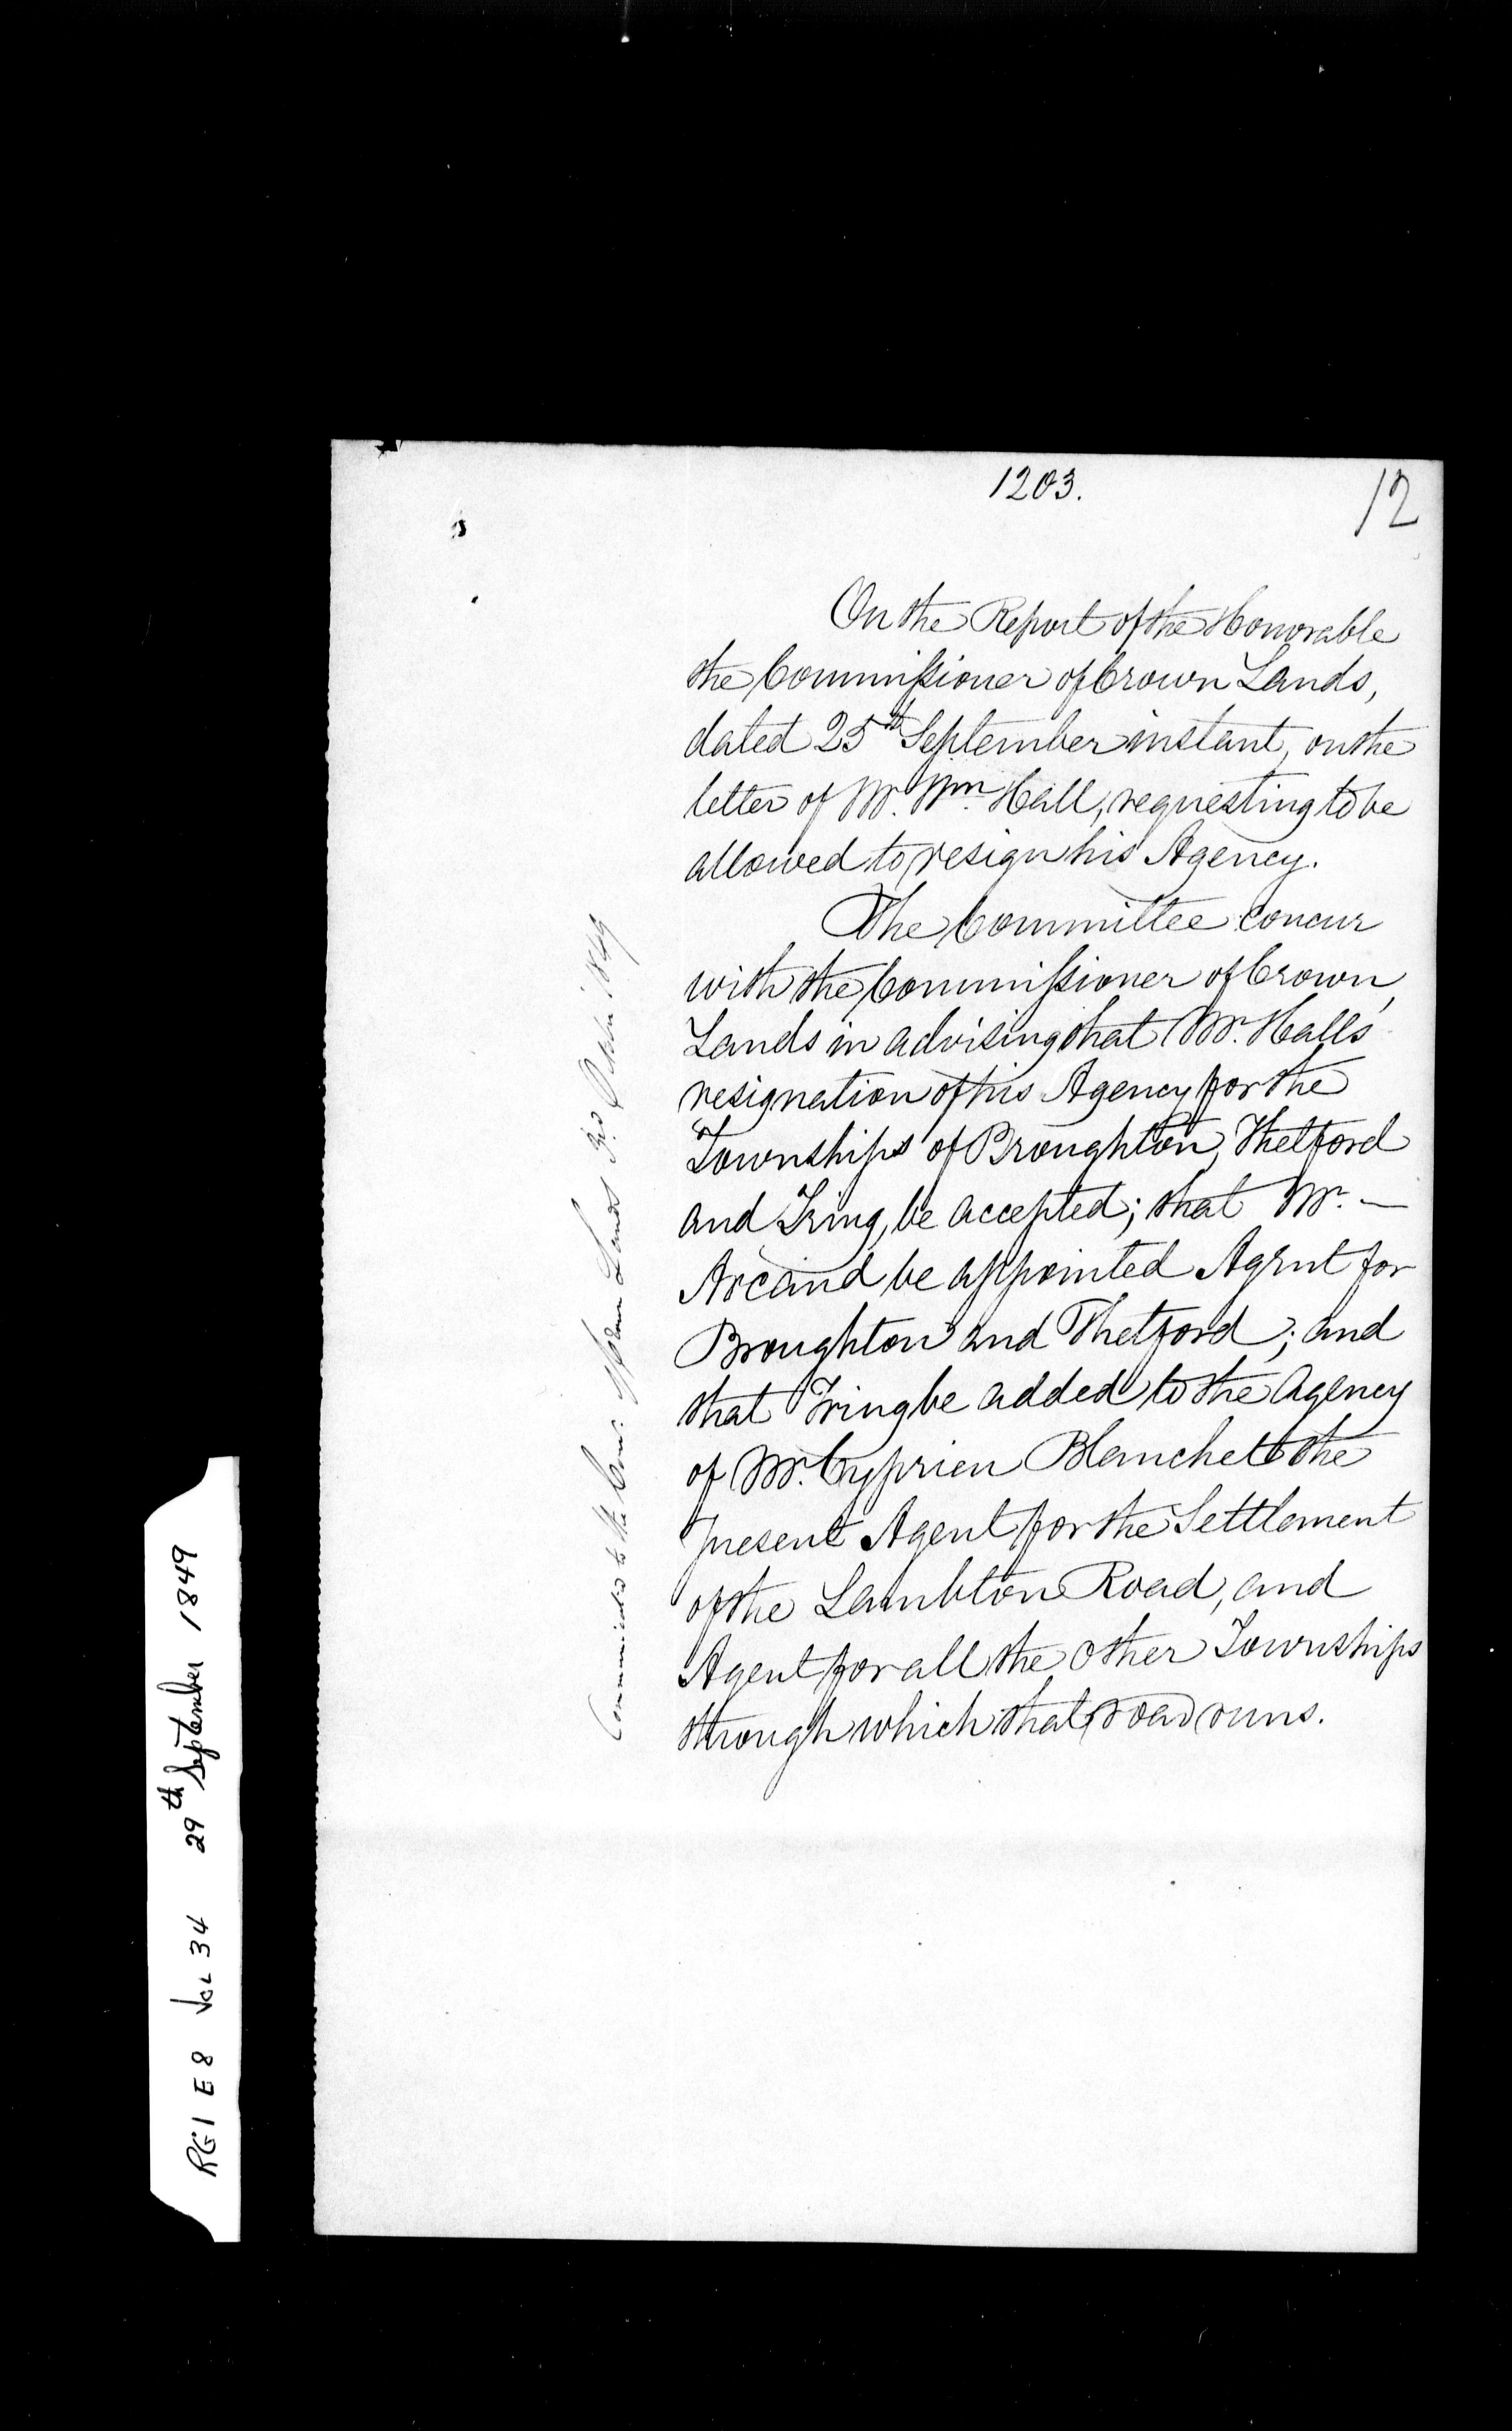 1203.
12
On the Report of the Honorable
the Commissioner of Crown Lands,
dated 25th September instant, on the
letter of Mr. Wm. Hall, requesting to be
allowed to resign his Agency.
The Committee concur
with the Commissioner of Crown
Lands in advising that Mr. Halls'
resignation of his Agency for the
Townships of Broughton, Thetford
and Tring, be accepted; that Mr. —
Arcand be appointed Agent for
Broughton and Thetford; and
that Tring be added to the Agency
of Mr. Cyprien Blanchet the
present Agent for the Settlement
of the Lambton Road, and
Agent for all the other Townships
through which that road runs.
Communicated to the Comr. of Crown Lands 3rd October 1849
RG1 E8 Vol 34 29th September 1849